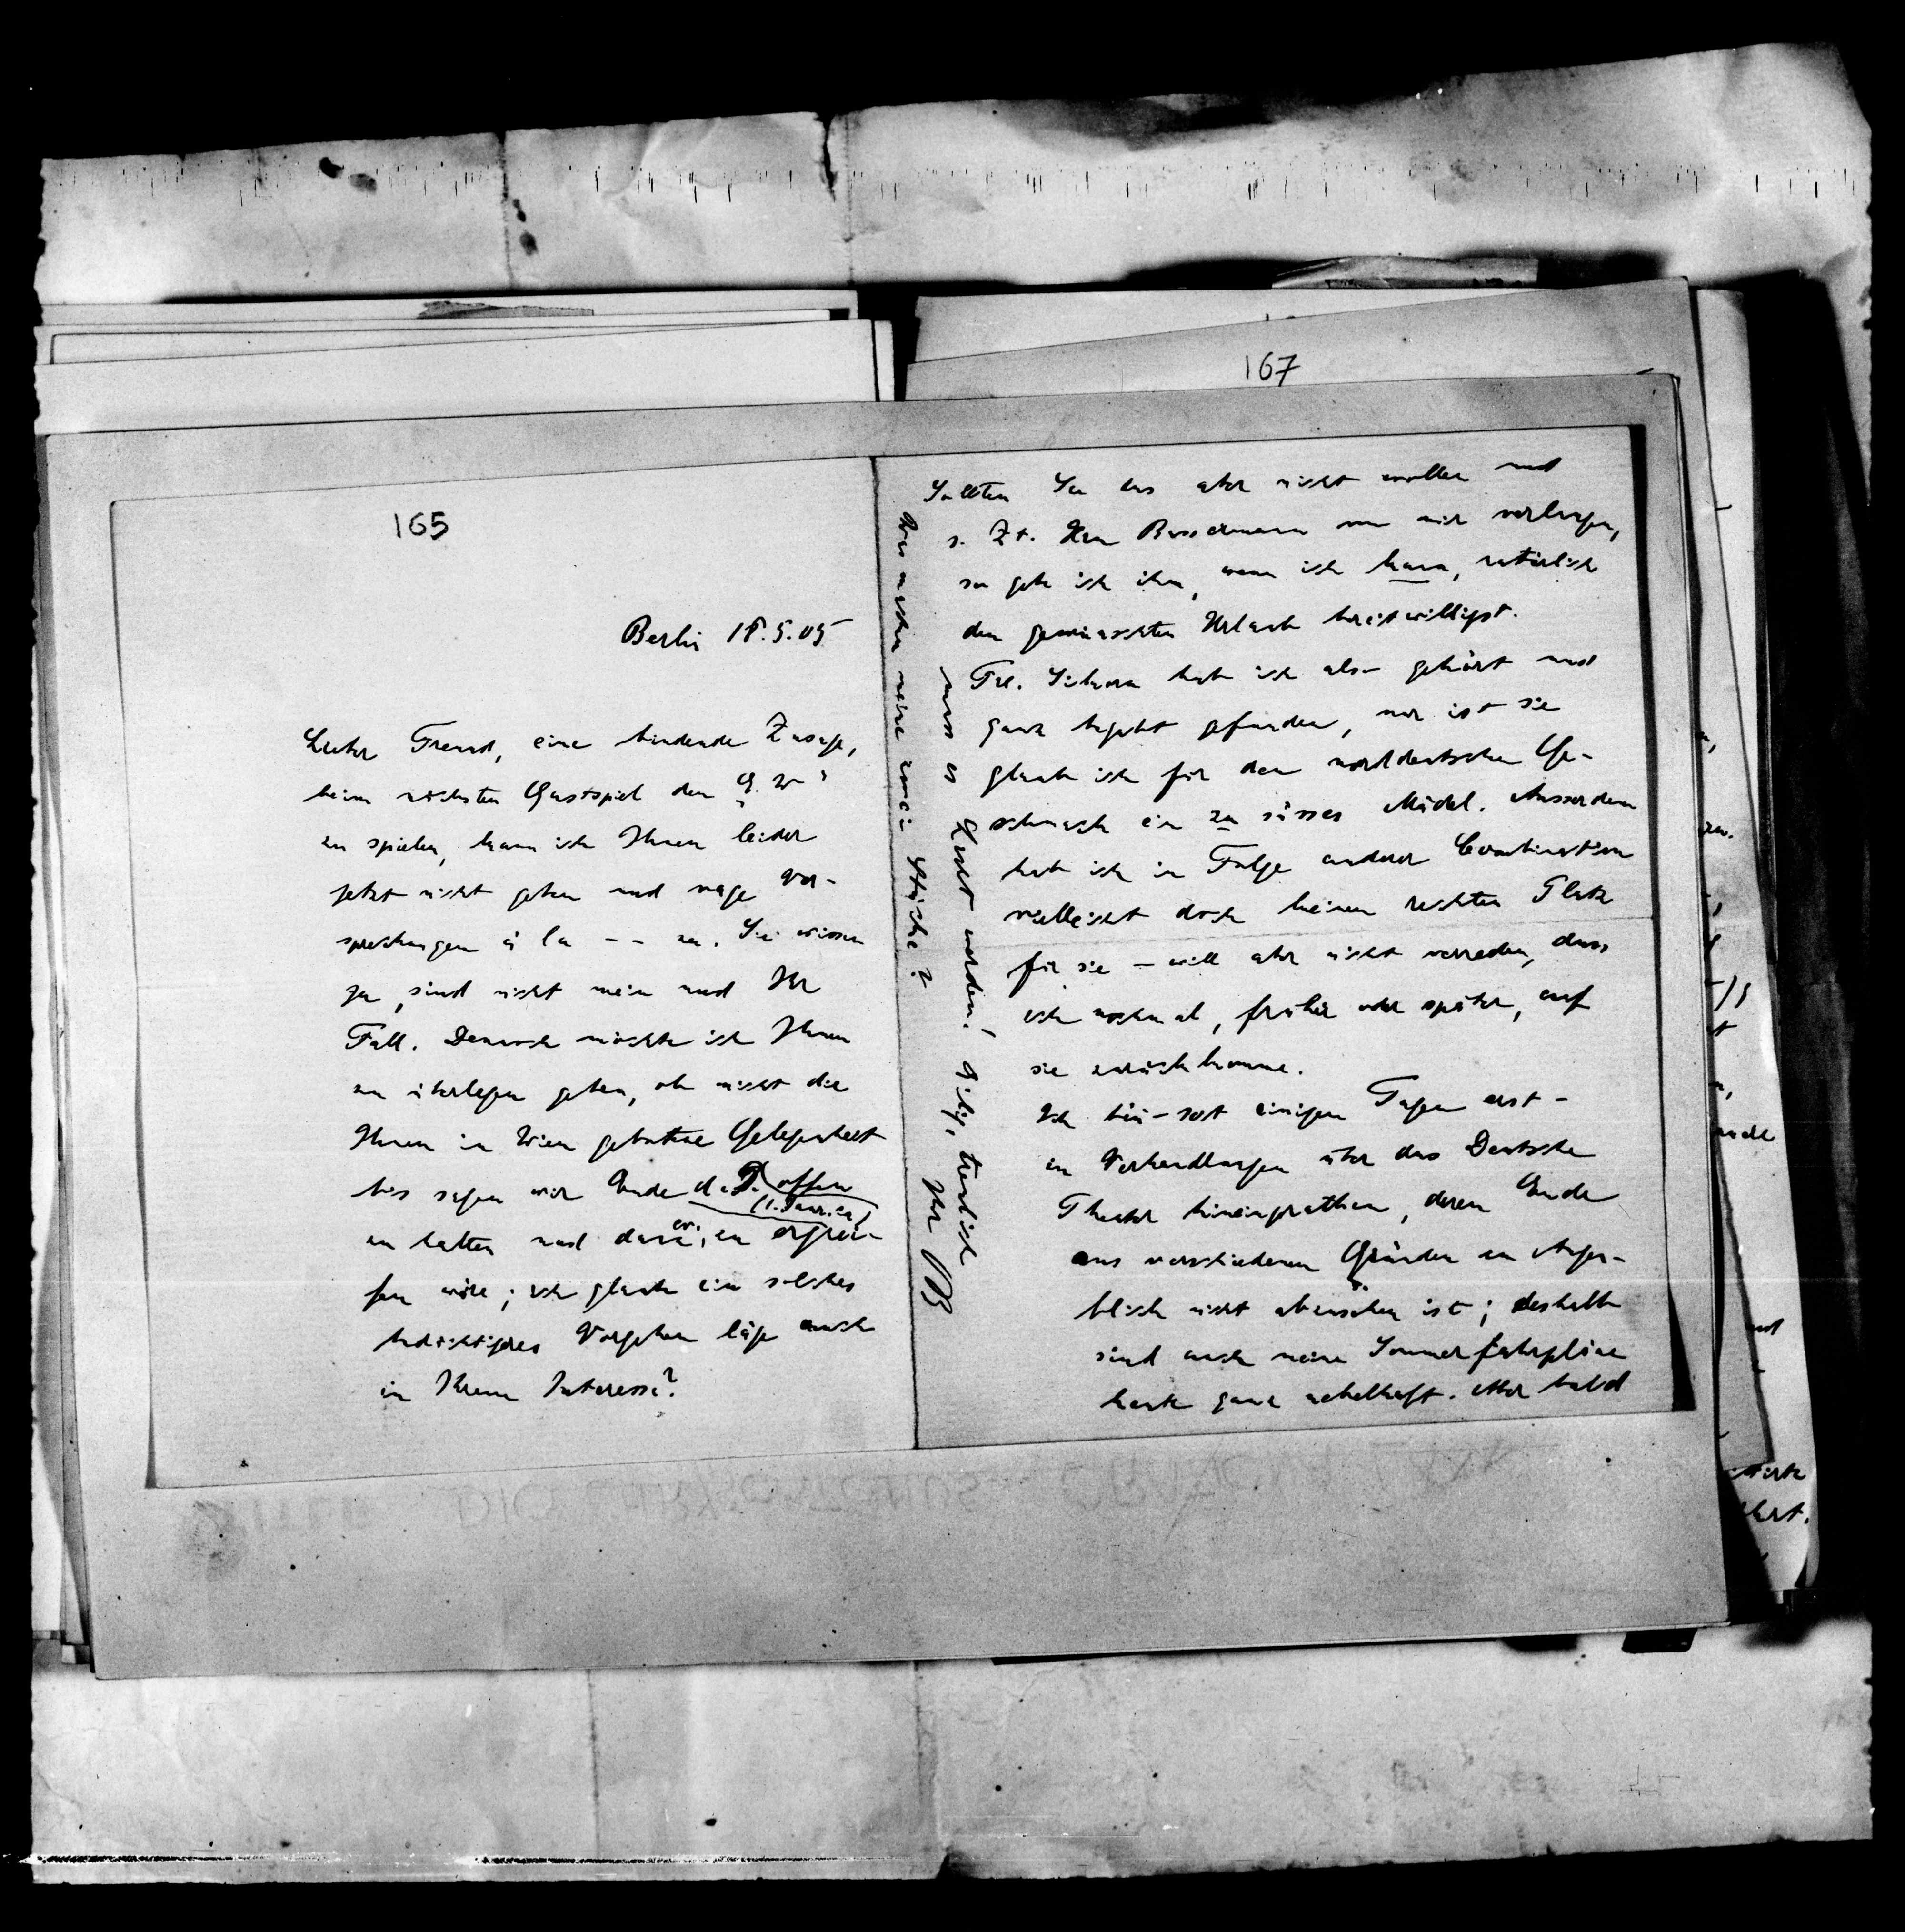 167
165
Berlin 18.5.05
Lieber Freund, eine bindende Zusage,
beim nächsten Gastspiel den „E. W“
zu spielen, kann ich Ihnen leider
jetzt nicht geben und vage Ver-
sprechungen à la -- na. Sie wissen
ja, sind nicht mein und Ihr
Fall. Dennoch möchte ich Ihnen
zu überlegen geben, ob nicht die
Ihnen in Wien gebotene Gelegenheit
bis sagen wir Ende d. J. offen
(1. Januar ca)
zu halten und dann ev. zu ergrei-
fen wäre; ich glaube ein solches
bedächtigeres Vorgehen läge auch
in Ihrem Interesse?
Sollten Sie das aber nicht wollen und
s. Zt. Herrn Bassermann von mir verlangen,
so gebe ich ihm, wenn ich kann, natürlich
den gewünschten Urlaub bereitwilligst.
Frl. hab ich also gehört und
ganz begabt gefunden, nur ist sie
glaube ich für den norddeutschen Ge-
schmack ein zu süsses Mädel. Ausserdem
hab ich in Folge anderer Combination
vielleicht doch keinen rechten Platz
für sie – will aber nicht verreden, dass
ich nochmal, früher oder später, auf
sie zurückkomme.
Ich bin – seit einigen Tagen erst –
in Verhandlungen über das Deutsche
Theater hineingerathen, deren Ende
aus verschiedenen Gründen im Augen-
blick nicht abzusehen ist; deshalb
sind auch meine Sommerfahrpläne
heute ganz nebelhaft. Aber bald
muss es werden! Eilig, treulich
Ihr OB
Was machen meine zwei Stücke?